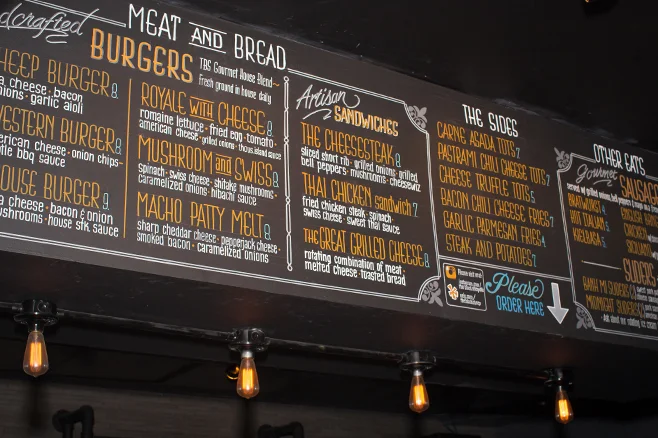 MEAT AND BREAD
BURGERS
TBS Gourmet House Blend~
Fresh ground in house daily
BURGER 8
a cheese · bacon
onions · garlic aioli
BURGER 8
cheese · onion chips~
bbq sauce
HOUSE BURGER 8
a cheese · bacon & onion
mushrooms · house stk sauce
ROYALE with CHEESE 8
romaine lettuce · fried egg · tomato~
american cheese · grilled onions · thous.island sauce
MUSHROOM and SWISS 8
spinach · swiss cheese · shitake mushrooms~
caramelized onions · hibachi sauce
MACHO PATTY MELT 8
sharp cheddar cheese · pepperjack cheese~
smoked bacon · caramelized onions
Artisan
SANDWICHES
THE CHEESESTEAK 8
sliced short rib · grilled onions · grilled
bell peppers · mushrooms · cheesewiz
THAI CHICKEN sandwich 7
fried chicken steak · spinach~
swiss cheese · sweet thai sauce
THE GREAT GRILLED CHEESE 8
rotating combination of meat~
melted cheese · toasted bread
THE SIDES
CARNE ASADA TOTS 7
PASTRAMI CHILI CHEESE TOTS 7
CHEESE TRUFFLE TOTS 5
BACON CHILI CHEESE FRIES 7
GARLIC PARMESAN FRIES 4
STEAK AND POTATOES 7
Please
ORDER HERE
OTHER EATS
Gourmet SAUSAGE
BRATWURST
HOT ITALIAN
KIELBASA
SLIDERS
BANH MI SLIDERS